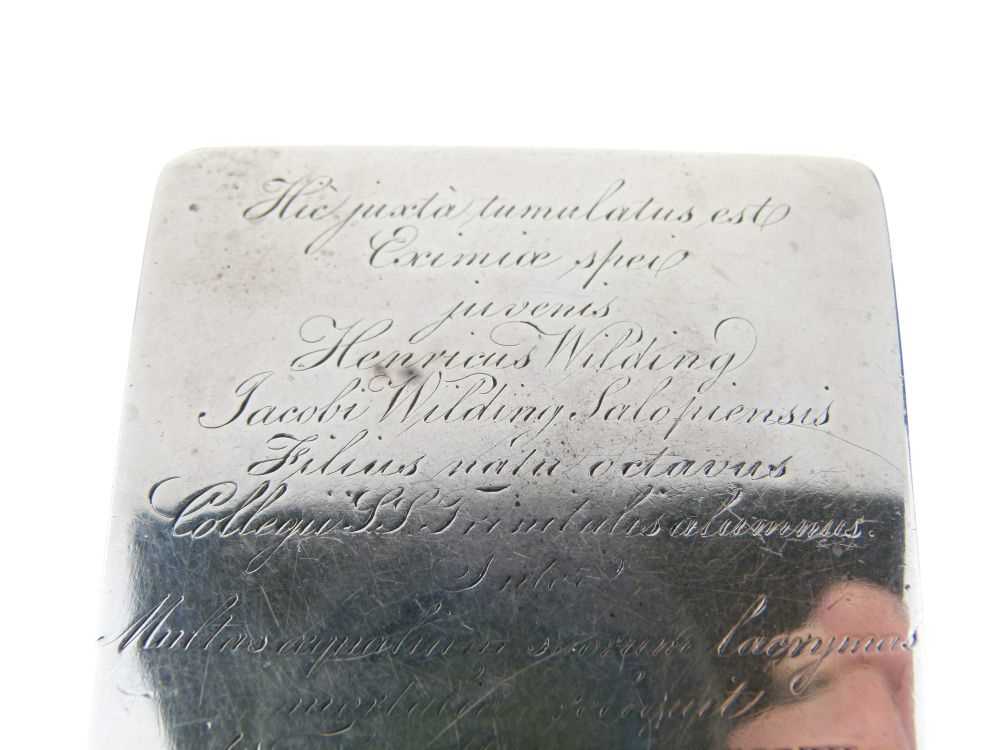 Hic juxtà tumulatus est
Eximiæ spei
juvenis
Henricus Wilding
Jacobi Wilding Salopiensis
Filius natu octavus
Collegii S S Trinitatis alumnus.
Inter
Multas æqualium suorum lacrymas